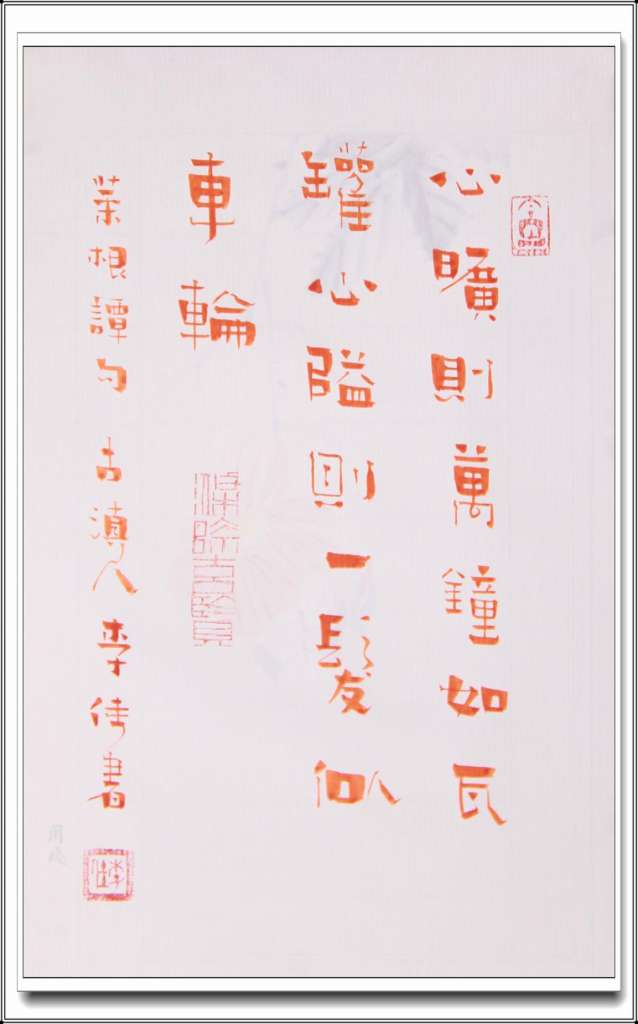 心曠則萬鐘如瓦
罐心隘則一髮似
車輪
菜根譚句 古溥人 李倚書